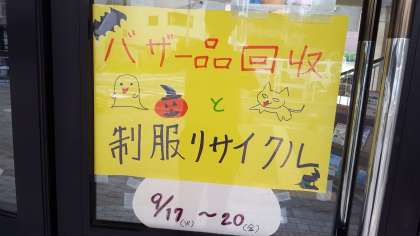 バザー品回収
と
制服リサイクル
9/17(火)～20(金)